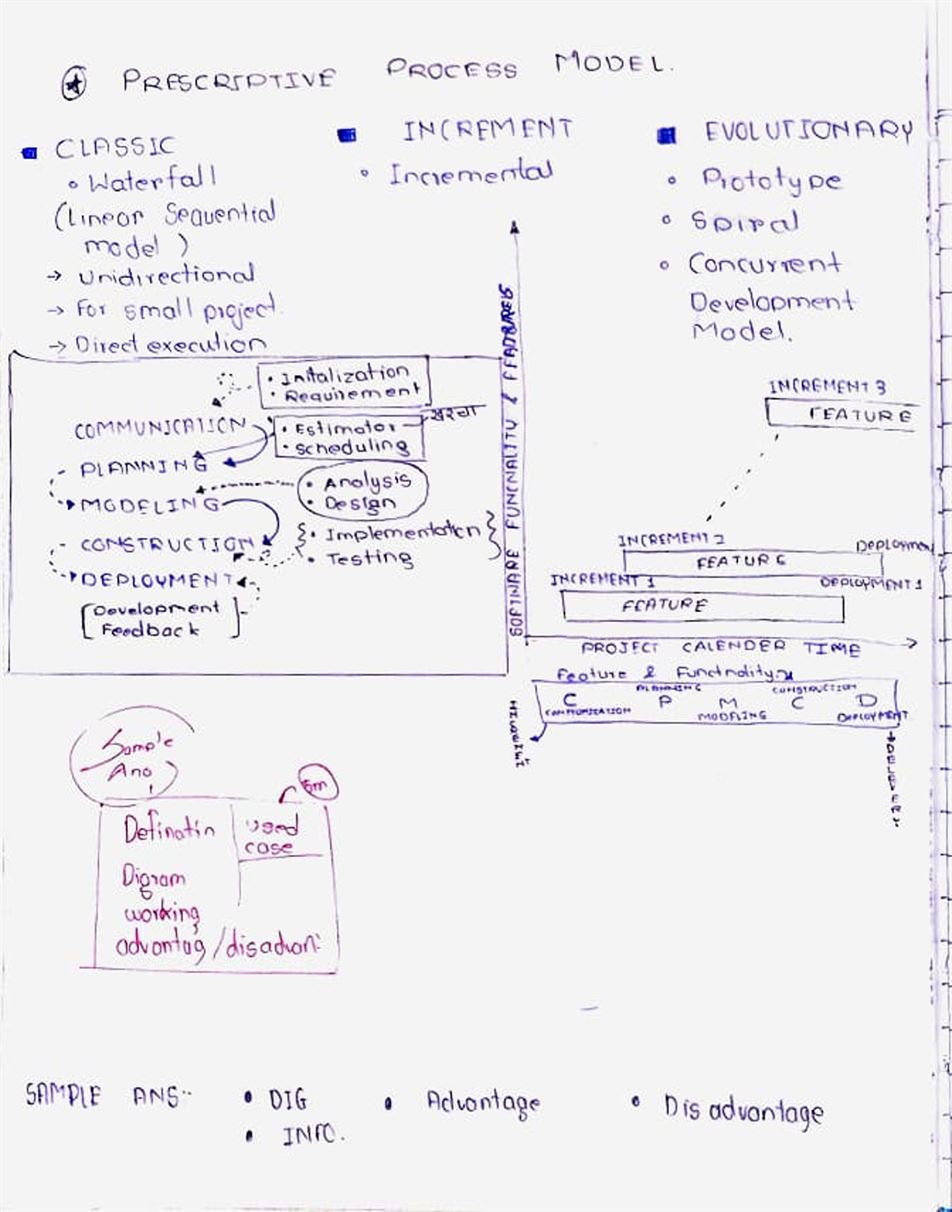 PRESCRIPTIVE PROCESS MODEL.
CLASSIC
• Waterfall
(Linear Sequential
model )
→ Unidirectional
→ For small project.
→ Direct execution
INCREMENT
• Incremental
EVOLUTIONARY
• Prototype
• Spiral
• Concurrent
Development
Model.
• Initalization
• Requirement
COMMUNICATION
• Estimator
• scheduling
खरचा
- PLANNING
• Analysis
• Design
MODELING
- CONSTRUCTION
• Implementation
• Testing
DEPLOYMENT
[Development
Feedback ]
SOFTWARE FUNCNALITY &
INCREMENT 3
FEATURE
INCREMENT 2
FEATURE
Deployment
INCREMENT 1
DEPLOYMENT 1
FEATURE
PROJECT CALENDER TIME
Feature &
C P M C D
COMMUNICATION
PLANNING
MODELING
CONSTRUCTION
DEPLOYMENT
DELEVERY
Sample
Ans
5m
Definatin
used
case
Digram
working
advantag/disadvan:
SAMPLE ANS..
• DIG
• INFO.
• Advantage
• Dis advantage